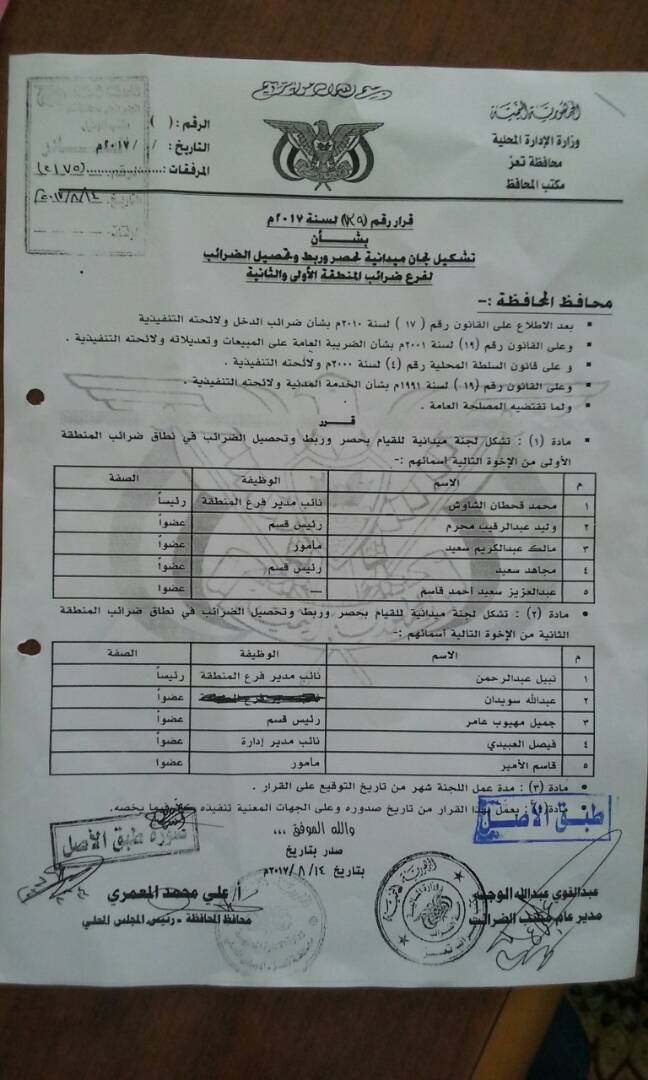 بسم الله الرحمن الرحيم
الجمهورية اليمنية
وزارة الإدارة المحلية
محافظة تعز
مكتب المحافظ
الرقم : ( )
التاريخ : / / ٢٠١٧م
المرفقات :
٢٠١٧/٨/١٤
قرار رقم ( ) لسنة ٢٠١٧م
بشأن
تشكيل لجان ميدانية لحصر وربط وتحصيل الضرائب
لفرع ضرائب المنطقة الأولى والثانية
محافظ المحافظة :-
▪ بعد الاطلاع على القانون رقم ( ١٧ ) لسنة ٢٠١٠م بشأن ضرائب الدخل ولائحته التنفيذية
▪ وعلى القانون رقم (١٩) لسنة ٢٠٠١م بشأن الضريبة العامة على المبيعات وتعديلاته ولائحته التنفيذية .
▪ و على قانون السلطة المحلية رقم (٤) لسنة ٢٠٠٠م ولائحته التنفيذية .
▪ وعلى القانون رقم (١٩) لسنة ١٩٩١م بشأن الخدمة المدنية ولائحته التنفيذية .
▪ ولما تقتضيه المصلحة العامة .
قرر
• مادة (١) : تشكل لجنة ميدانية للقيام بحصر وربط وتحصيل الضرائب في نطاق ضرائب المنطقة
الأولى من الإخوة التالية أسمائهم :-
م الاسم الوظيفة الصفة
١ محمد قحطان الشاوش نائب مدير فرع المنطقة رئيساً
٢ وليد عبدالرقيب محرم رئيس قسم عضواً
٣ مالك عبدالكريم سعيد مأمور عضواً
٤ مجاهد سعيد رئيس قسم عضواً
٥ عبدالعزيز سعيد أحمد قاسم — عضواً
• مادة (٢) : تشكل لجنة ميدانية للقيام بحصر وربط وتحصيل الضرائب في نطاق ضرائب المنطقة
الثانية من الإخوة التالية أسمائهم :-
م الاسم الوظيفة الصفة
١ نبيل عبدالرحمن نائب مدير فرع المنطقة رئيساً
٢ عبدالله سويدان عضواً
٣ جميل مهيوب عامر رئيس قسم عضواً
٤ فيصل العبيدي نائب مدير إدارة عضواً
٥ قاسم الأمير مأمور عضواً
• مادة (٣) : مدة عمل اللجنة شهر من تاريخ التوقيع على القرار .
• مادة : يعمل بهذا القرار من تاريخ صدوره وعلى الجهات المعنية تنفيذه كلاً فيما يخصه.
طبق الأصل
صورة طبق الأصل
والله الموفق ,,,
صدر بتاريخ
بتاريخ ٢٠١٧/٨/١٤م
عبدالقوي عبدالله الوجيه
مدير عام مكتب الضرائب
أ/ علي محمد المعمري
محافظ المحافظة - رئيس المجلس المحلي